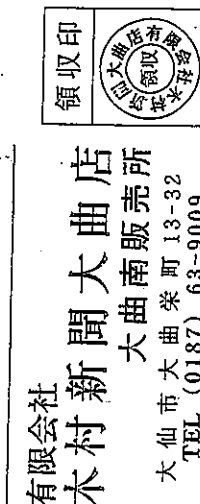 有限会社
木村新聞大曲店
大曲南販売所
大仙市大曲栄町13-32
TEL (0187) 63-9009
領収印
領収